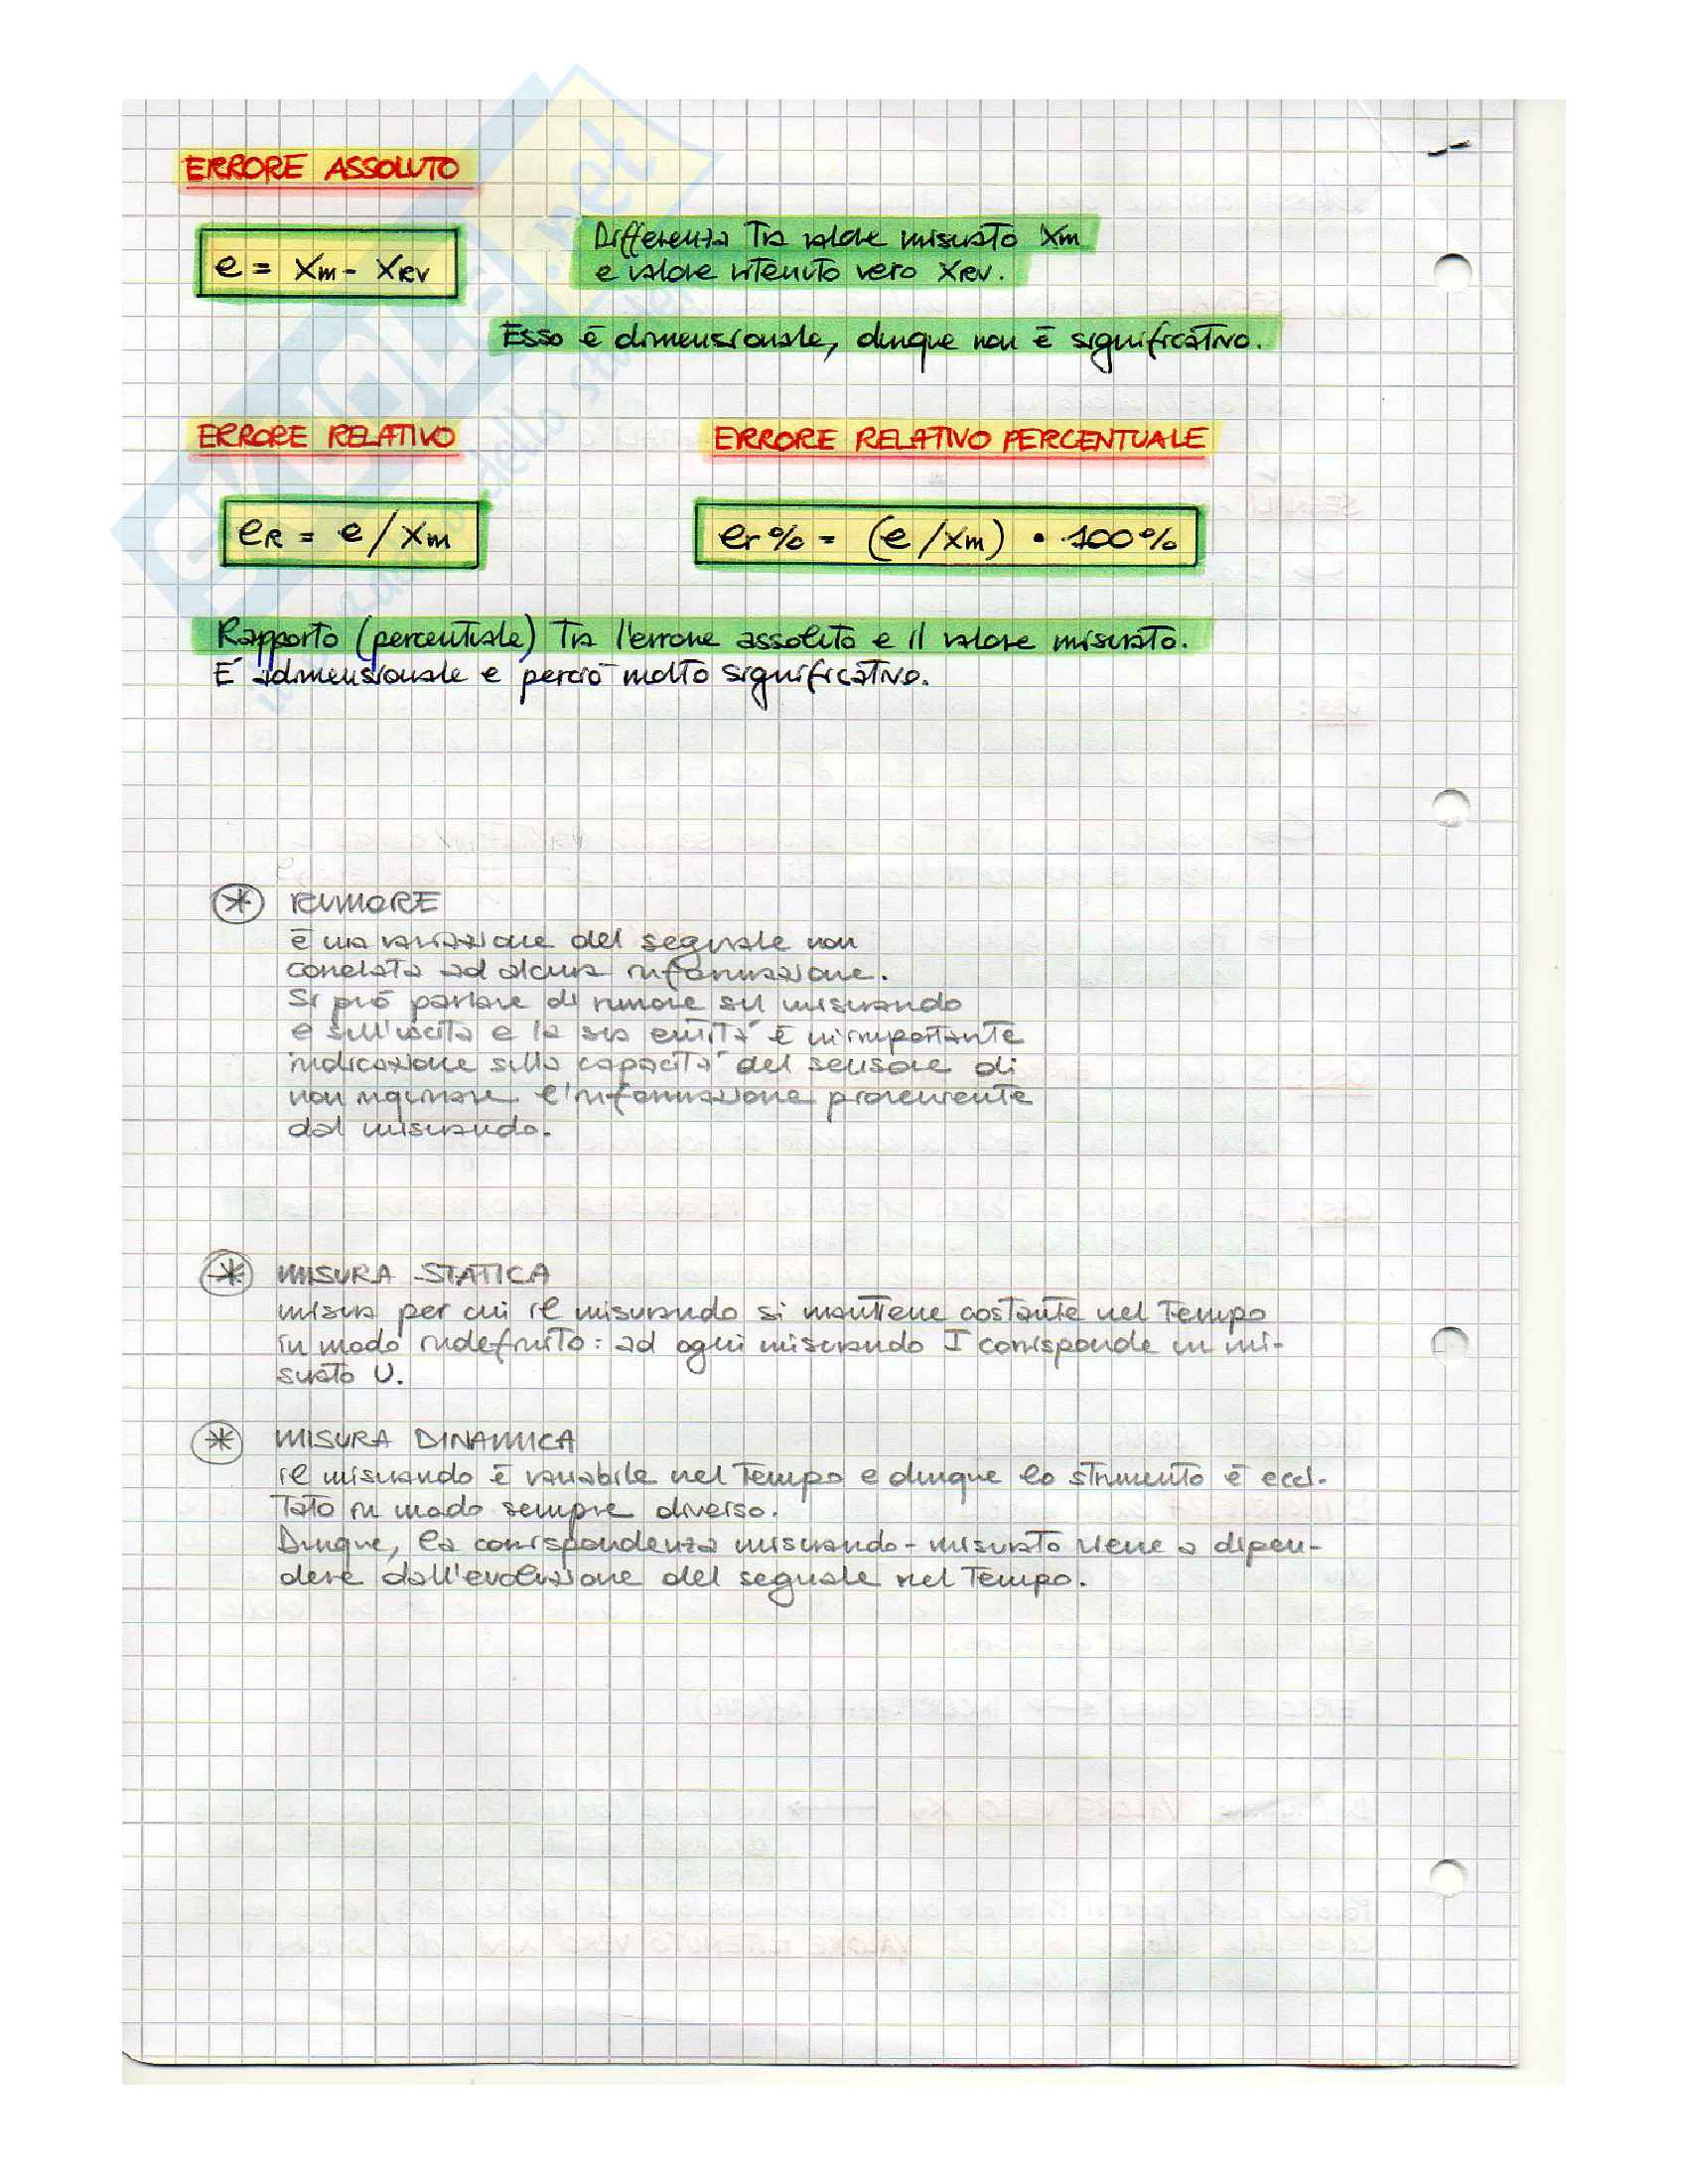 ERRORE ASSOLUTO
e = Xm - XRV
Differenza Tra valore misurato Xm
e valore ritenuto vero XRV.
Esso è dimensionale, dunque non è significativo.
ERRORE RELATIVO
ERRORE RELATIVO PERCENTUALE
eR = e/Xm
er% = (e/Xm) • 100%
Rapporto (percentuale) Tra l'errore assoluto e il valore misurato.
E' adimensionale e perciò molto significativo.
* RUMORE
è una variazione del segnale non
correlata ad alcuna informazione.
Si può parlare di rumore sul misurando
e sull'uscita e la sua entità è un'importante
indicazione sulla capacità del sensore di
non inquinare l'informazione proveniente
dal misurando.
* MISURA STATICA
misura per cui il misurando si mantiene costante nel Tempo
in modo indefinito: ad ogni misurando I corrisponde un mi-
surato U.
* MISURA DINAMICA
il misurando è variabile nel Tempo e dunque lo strumento è ecci-
Tato in modo sempre diverso.
Dunque, la corrispondenza misurando-misurato viene a dipen-
dere dall'evoluzione del segnale nel Tempo.